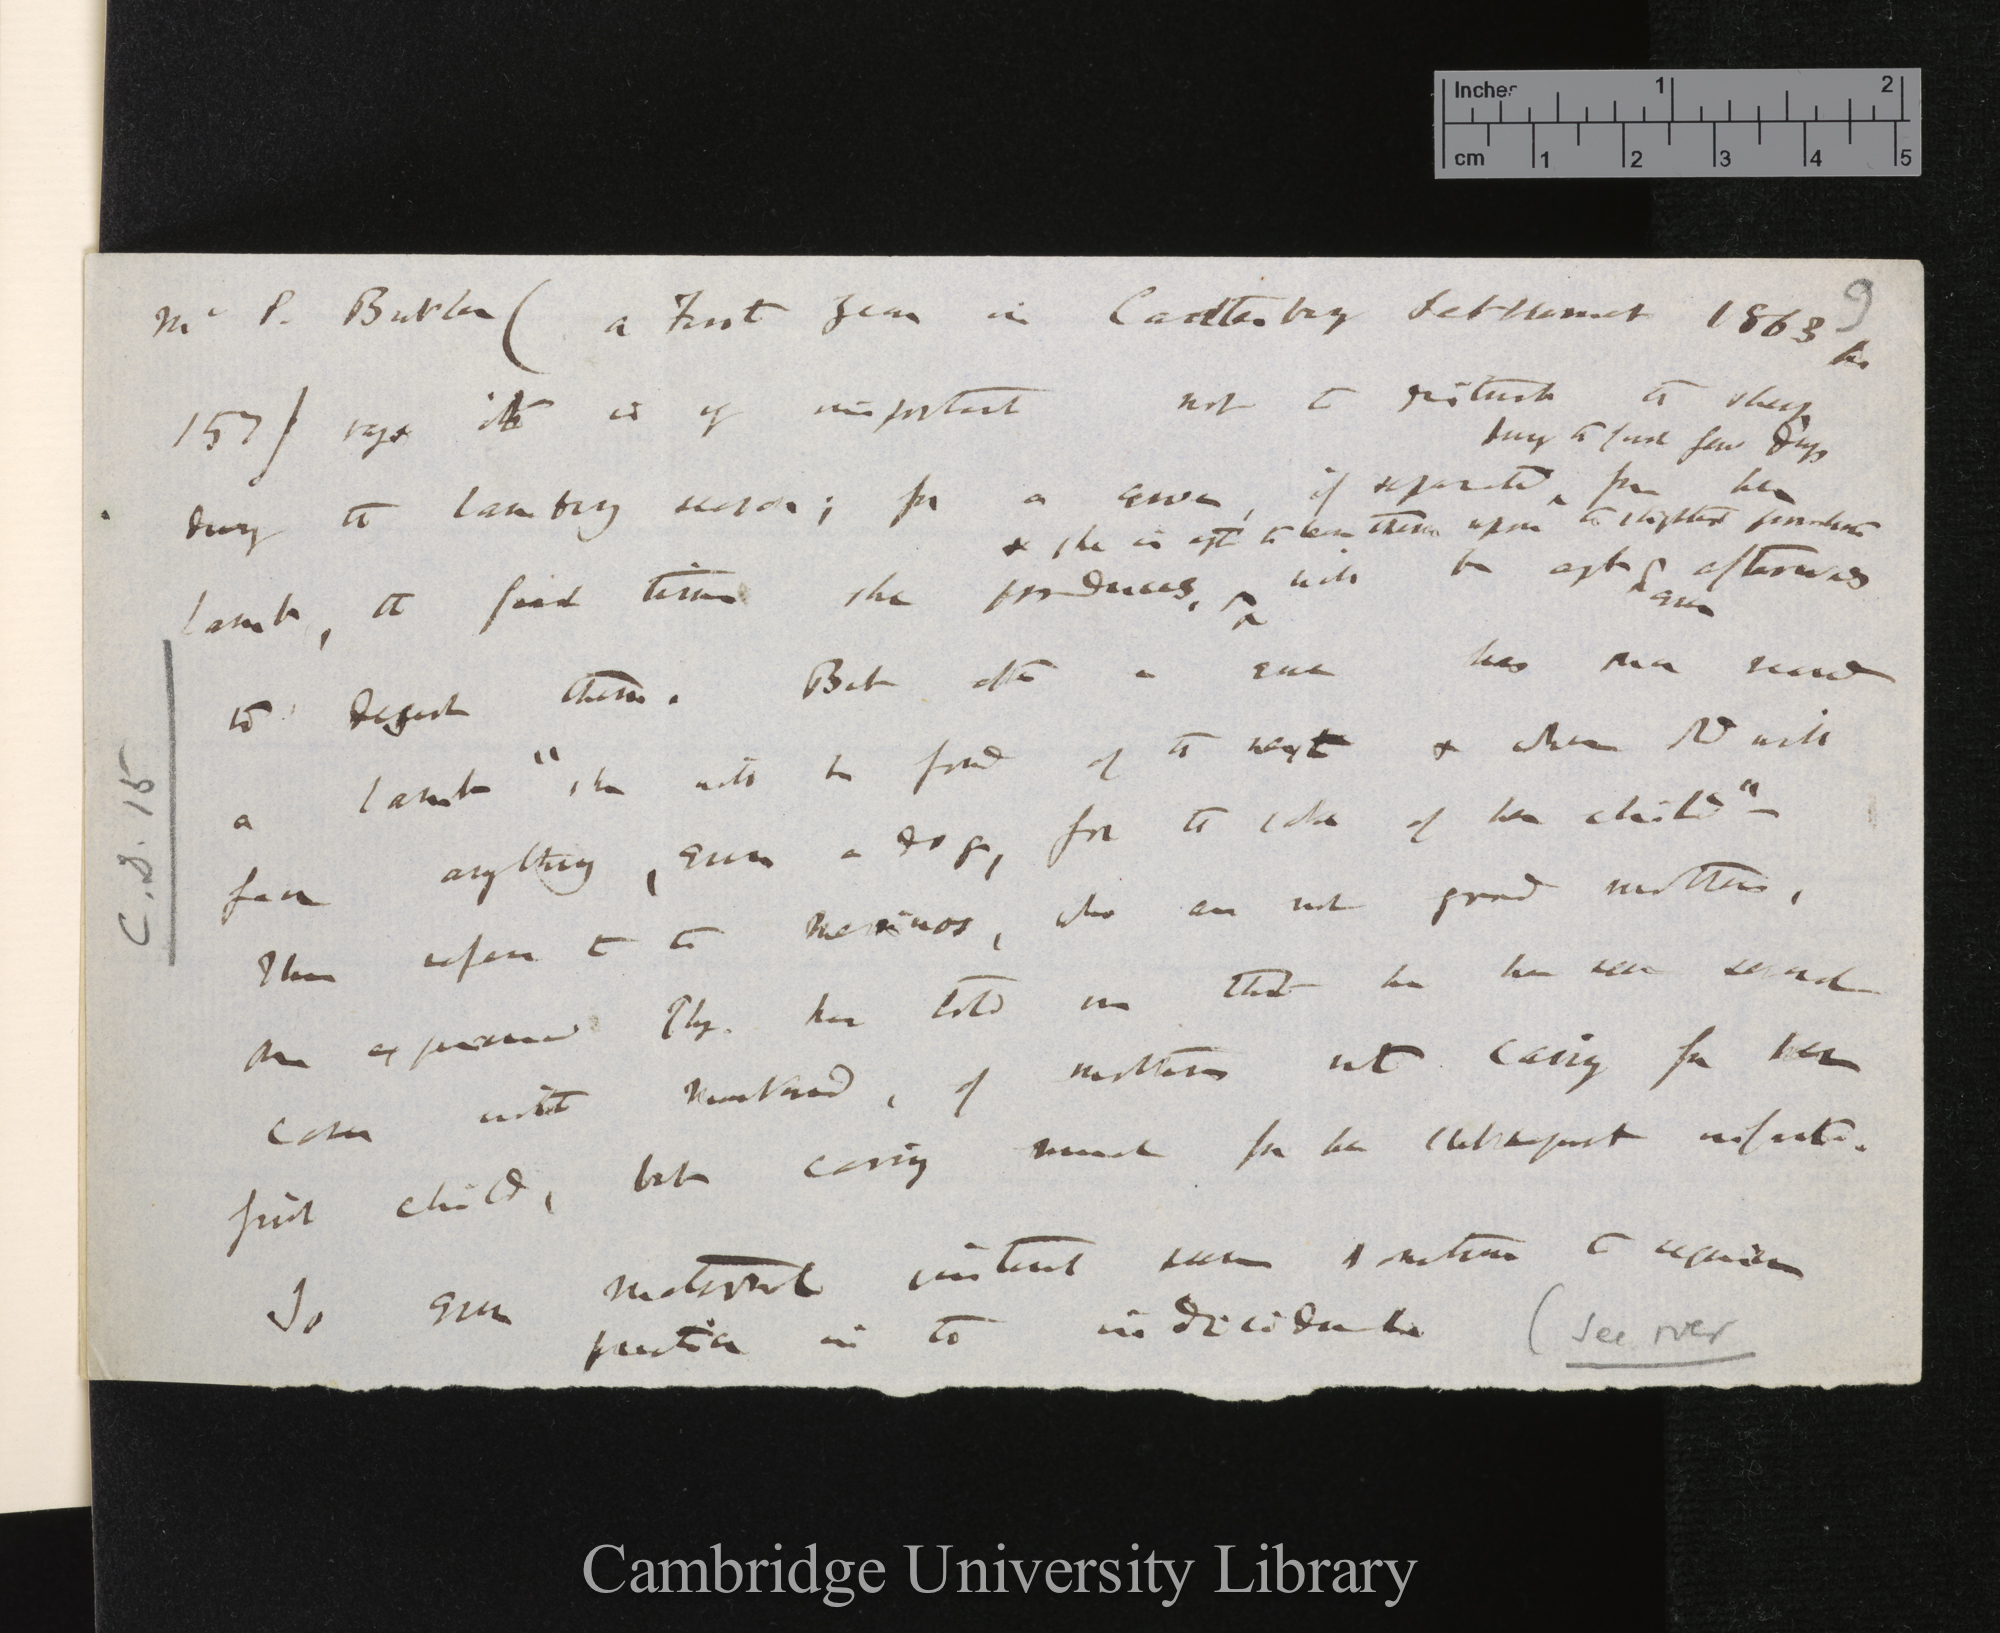 Inches 1 2
cm 1 2 3 4 5
9
Mr S. Butler ( a First Year in Canterbury Settlement 1863 p.
157) says it is of important not to disturb the sheep
during the first few days
during the lambing season; for a ewe, if separated from her
& she is apt to leave them upon the slightest provocation
lamb, the first time she produces, will be apt afterwards
ever
to desert them. But after a ewe has once reared
a lamb "she will be fond of the next & when old will
face anything, even a dog, for the sake of her child"—
This refers to the merinos, who are not good mothers,
An experienced Phys. has told me that he has seen several
cases with mankind, of mothers not caring for her
first child, but caring much for her subsequent infants.
So even maternal instinct seems sometimes to require
practice in the individuals (See over
C.D. 15
Cambridge University Library